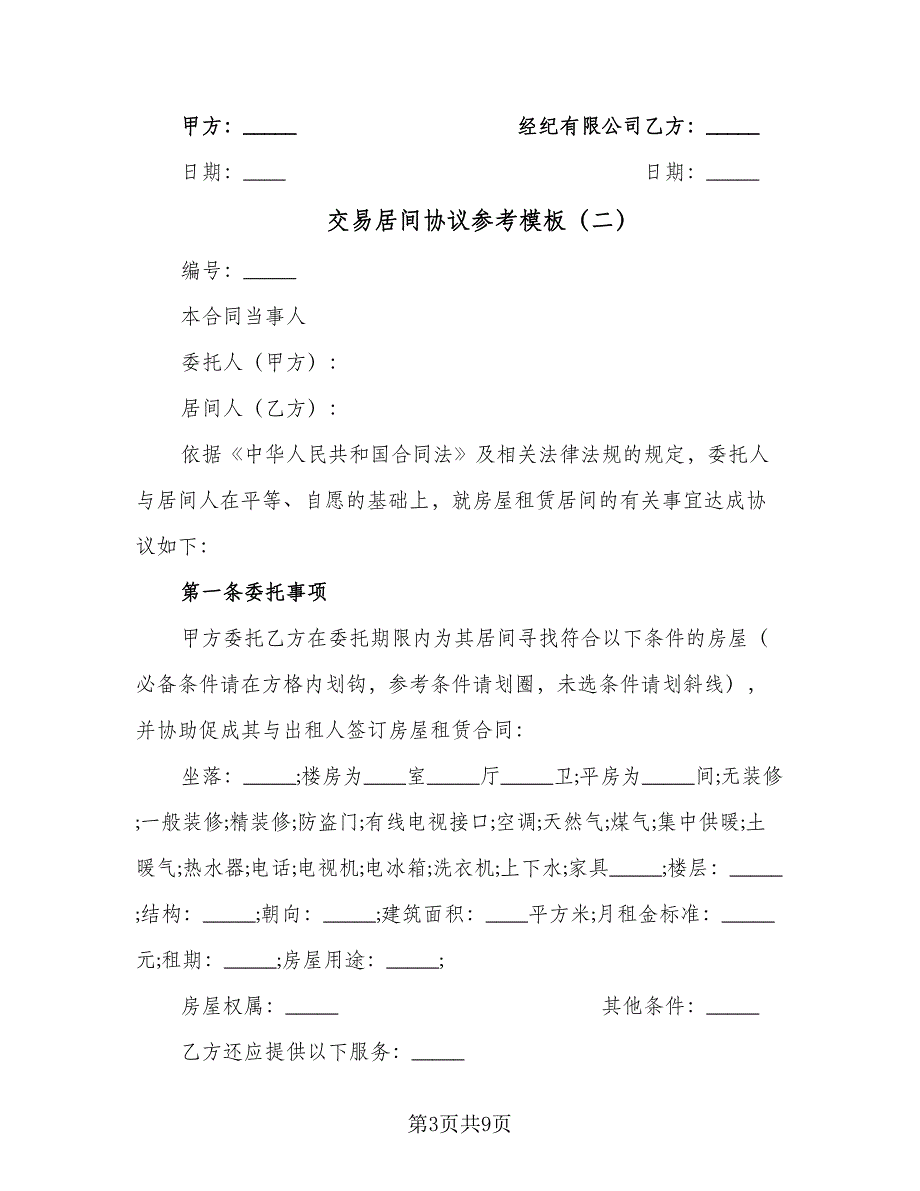 甲方：_____ 经纪有限公司乙方：_____
日期：____ 日期：_____
交易居间协议参考模板（二）
编号：_____
本合同当事人
委托人（甲方）：
居间人（乙方）：
依据《中华人民共和国合同法》及相关法律法规的规定，委托人
与居间人在平等、自愿的基础上，就房屋租赁居间的有关事宜达成协
议如下：
第一条委托事项
甲方委托乙方在委托期限内为其居间寻找符合以下条件的房屋（
必备条件请在方格内划钩，参考条件请划圈，未选条件请划斜线），
并协助促成其与出租人签订房屋租赁合同：
坐落：_____;楼房为____室_____厅_____卫;平房为_____间;无装修
;一般装修;精装修;防盗门;有线电视接口;空调;天然气;煤气;集中供暖;土
暖气;热水器;电话;电视机;电冰箱;洗衣机;上下水;家具_____;楼层：_____
;结构：_____;朝向：_____;建筑面积：____平方米;月租金标准：_____
元;租期：_____;房屋用途：_____;
房屋权属：_____ 其他条件：_____
乙方还应提供以下服务：_____
第3页共9页